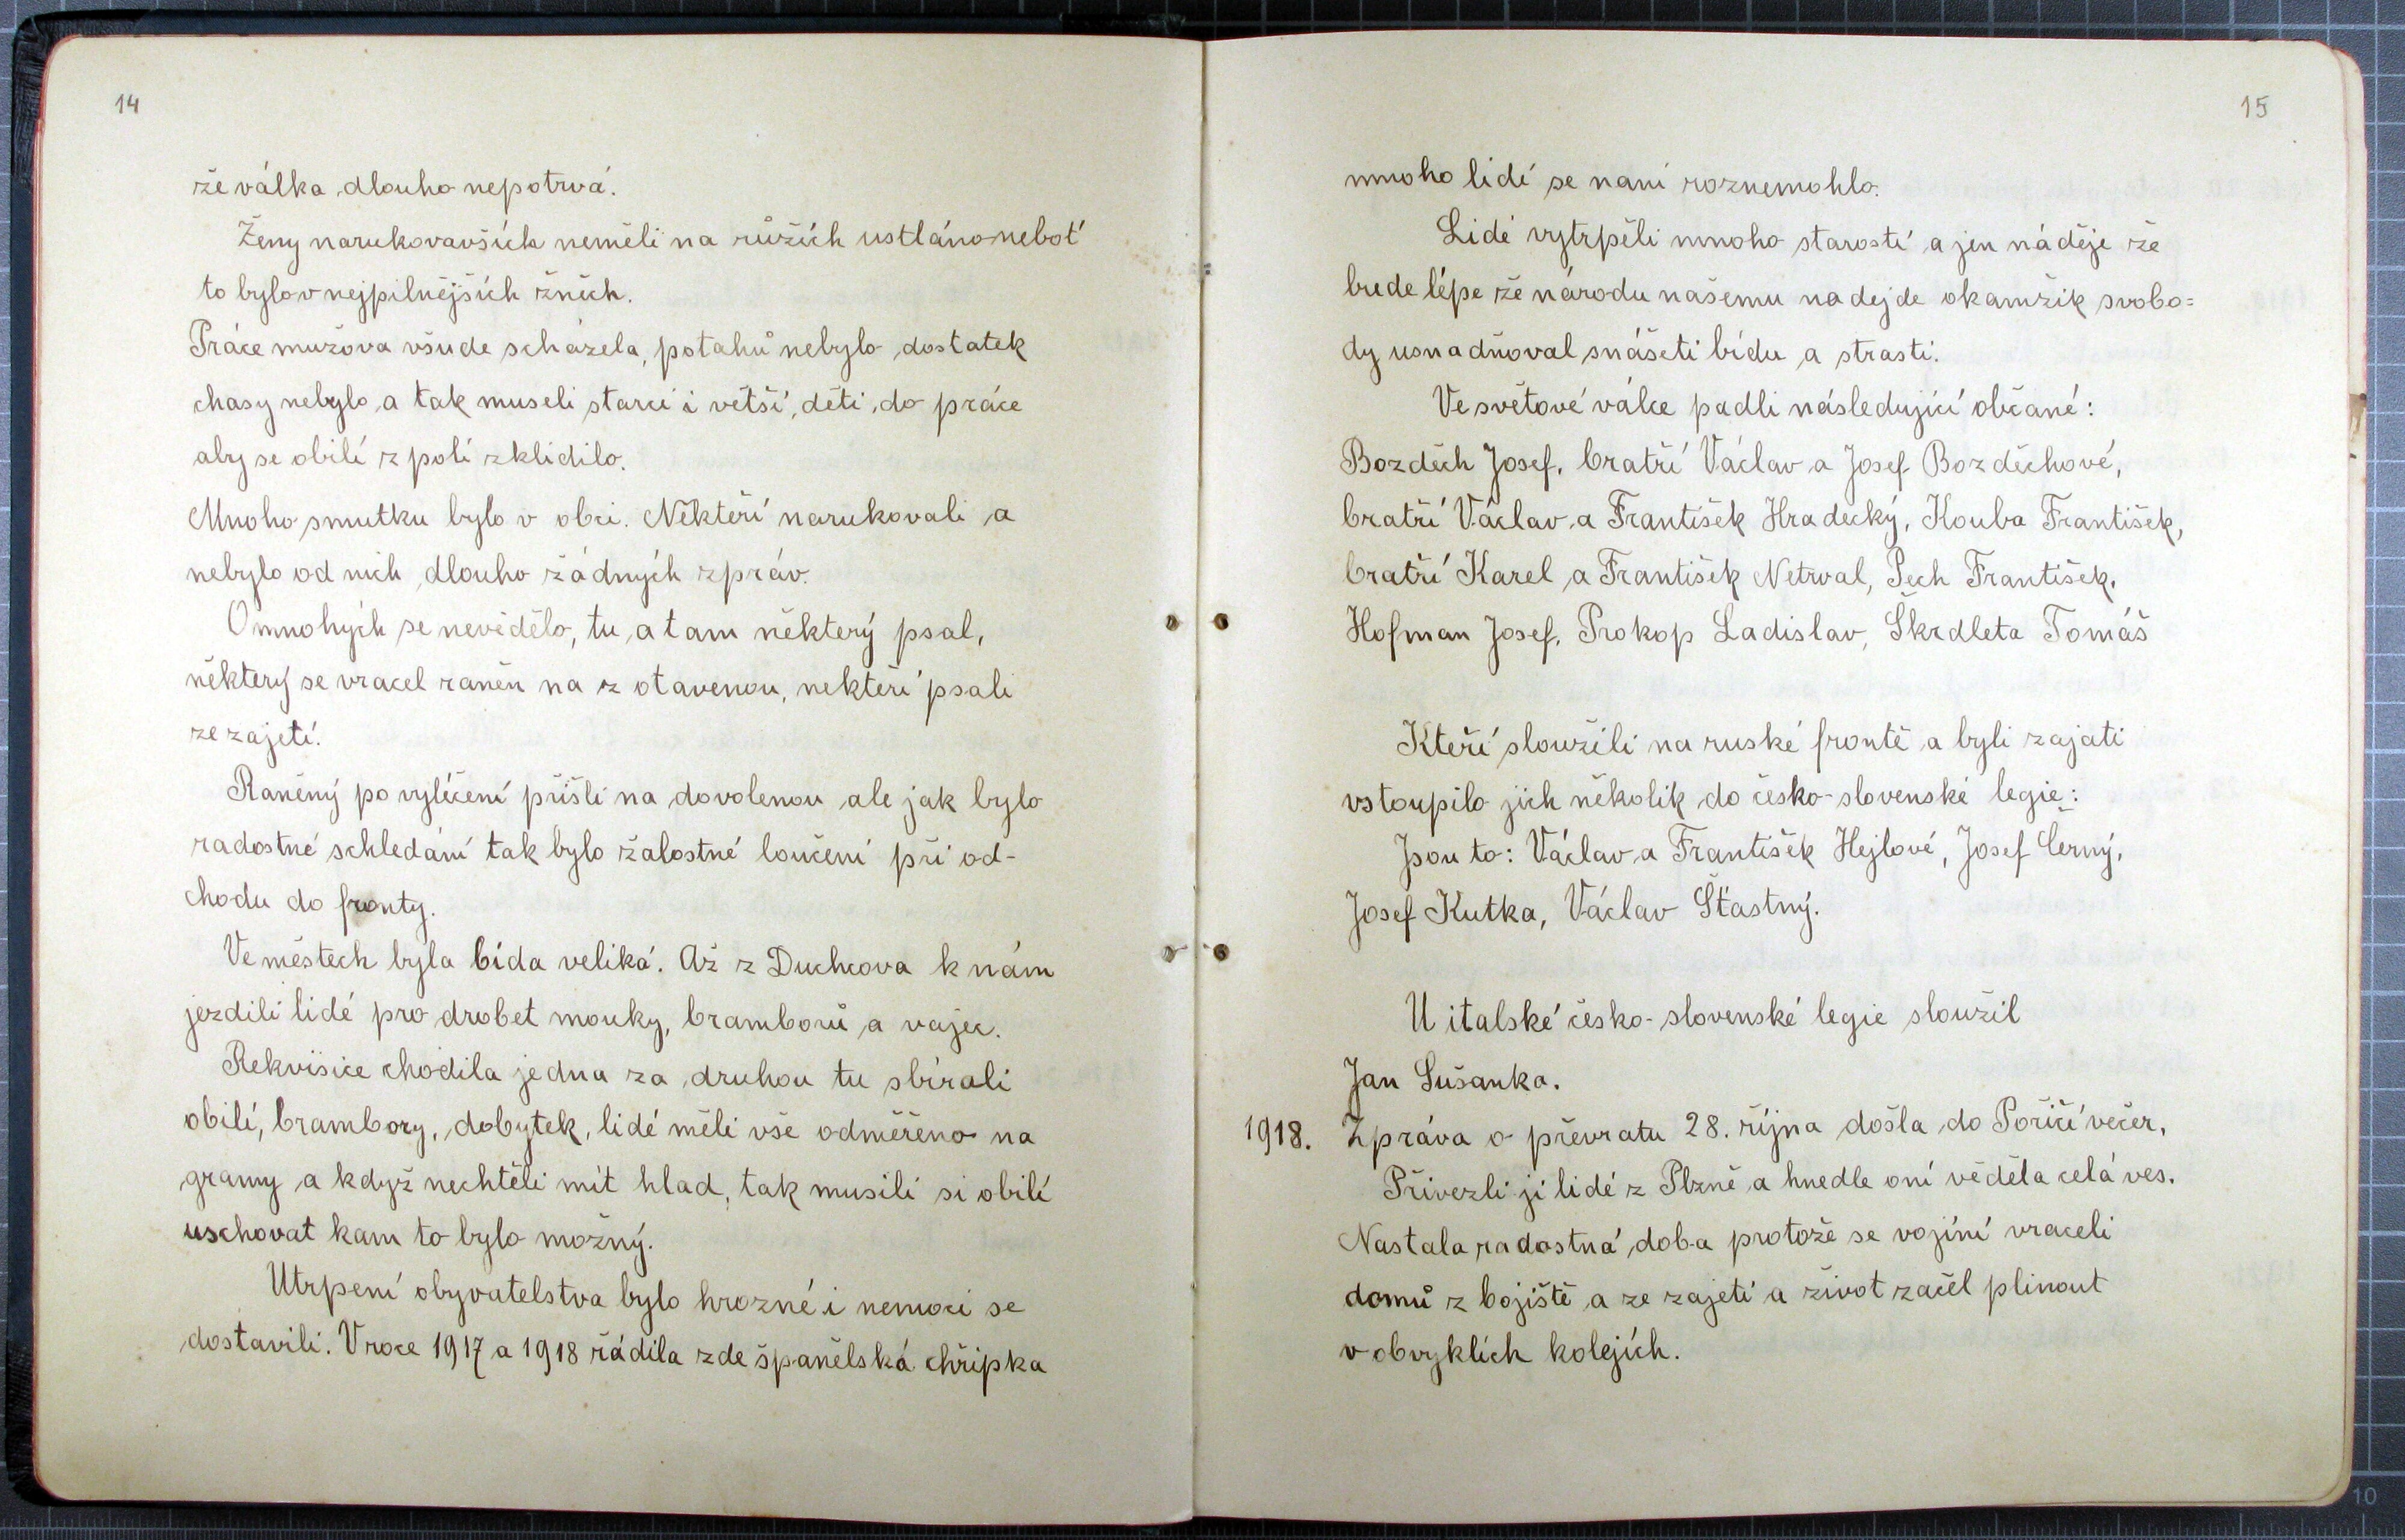 14
že válka dlouho nepotrvá.
Ženy narukovavších neměli na růžích ustláno neboť
to bylo v nejpilnějších žních.
Práce mužova všude scházela, potahů nebylo dostatek
chasy nebylo a tak museli starci i větší děti do práce
aby se obilí z polí zklidilo.
Mnoho smutku bylo v obci. Někteří narukovali a
nebylo od nich dlouho žádných zpráv.
O mnohých se nevědělo, tu a tam některý psal,
některý se vracel raněn na zotavenou, nekteří psali
ze zajetí.
Raněný po vylíčení přišli na dovolenou ale jak bylo
radostné schledání tak bylo žalostné loučení při od-
chodu do fronty.
Ve městech byla bída veliká. Až z Duchcova k nám
jezdili lidé pro drobet mouky, bramborů a vajec.
Rekvisice chodila jedna za druhou tu sbírali
obilí, brambory, dobytek, lidé měli vše odměřeno na
gramy a když nechtěli mít hlad, tak musili si obilí
uschovat kam to bylo možný.
Utrpení obyvatelstva bylo hrozné i nemoci se
dostavili. V roce 1917 a 1918 řádila zde španělská chřipka
15
mnoho lidí se naní roznemohlo.
Lidé vytrpěli mnoho starostí a jen náděje že
bude lépe že národu našemu nadejde okamžik svobo=
dy usnadňoval snášeti bídu a strasti.
Ve světové válce padli následující občané:
Bozděch Josef, bratří Václav a Josef Bozděchové,
bratří Václav a František Hradecký, Kouba František,
bratří Karel a František Netrval, Pech František,
Hofman Josef, Prokop Ladislav, Škrdleta Tomáš
Kteří sloužili na ruské frontě a byli zajati
vstoupilo jich několik do česko-slovenské legie:
Jsou to: Václav a František Hejlové, Josef Černý,
Josef Kutka, Václav Šťastný.
U italské česko-slovenské legie sloužil
Jan Sušanka.
1918. Zpráva o převratu 28. října došla do Poříčí večer,
Přivezli ji lidé z Plzně a hnedle oní věděla celá ves.
Nastala radostná doba protože se vojíni vraceli
domů z bojiště a ze zajetí a život začel plinout
v obvyklích kolejích.
10